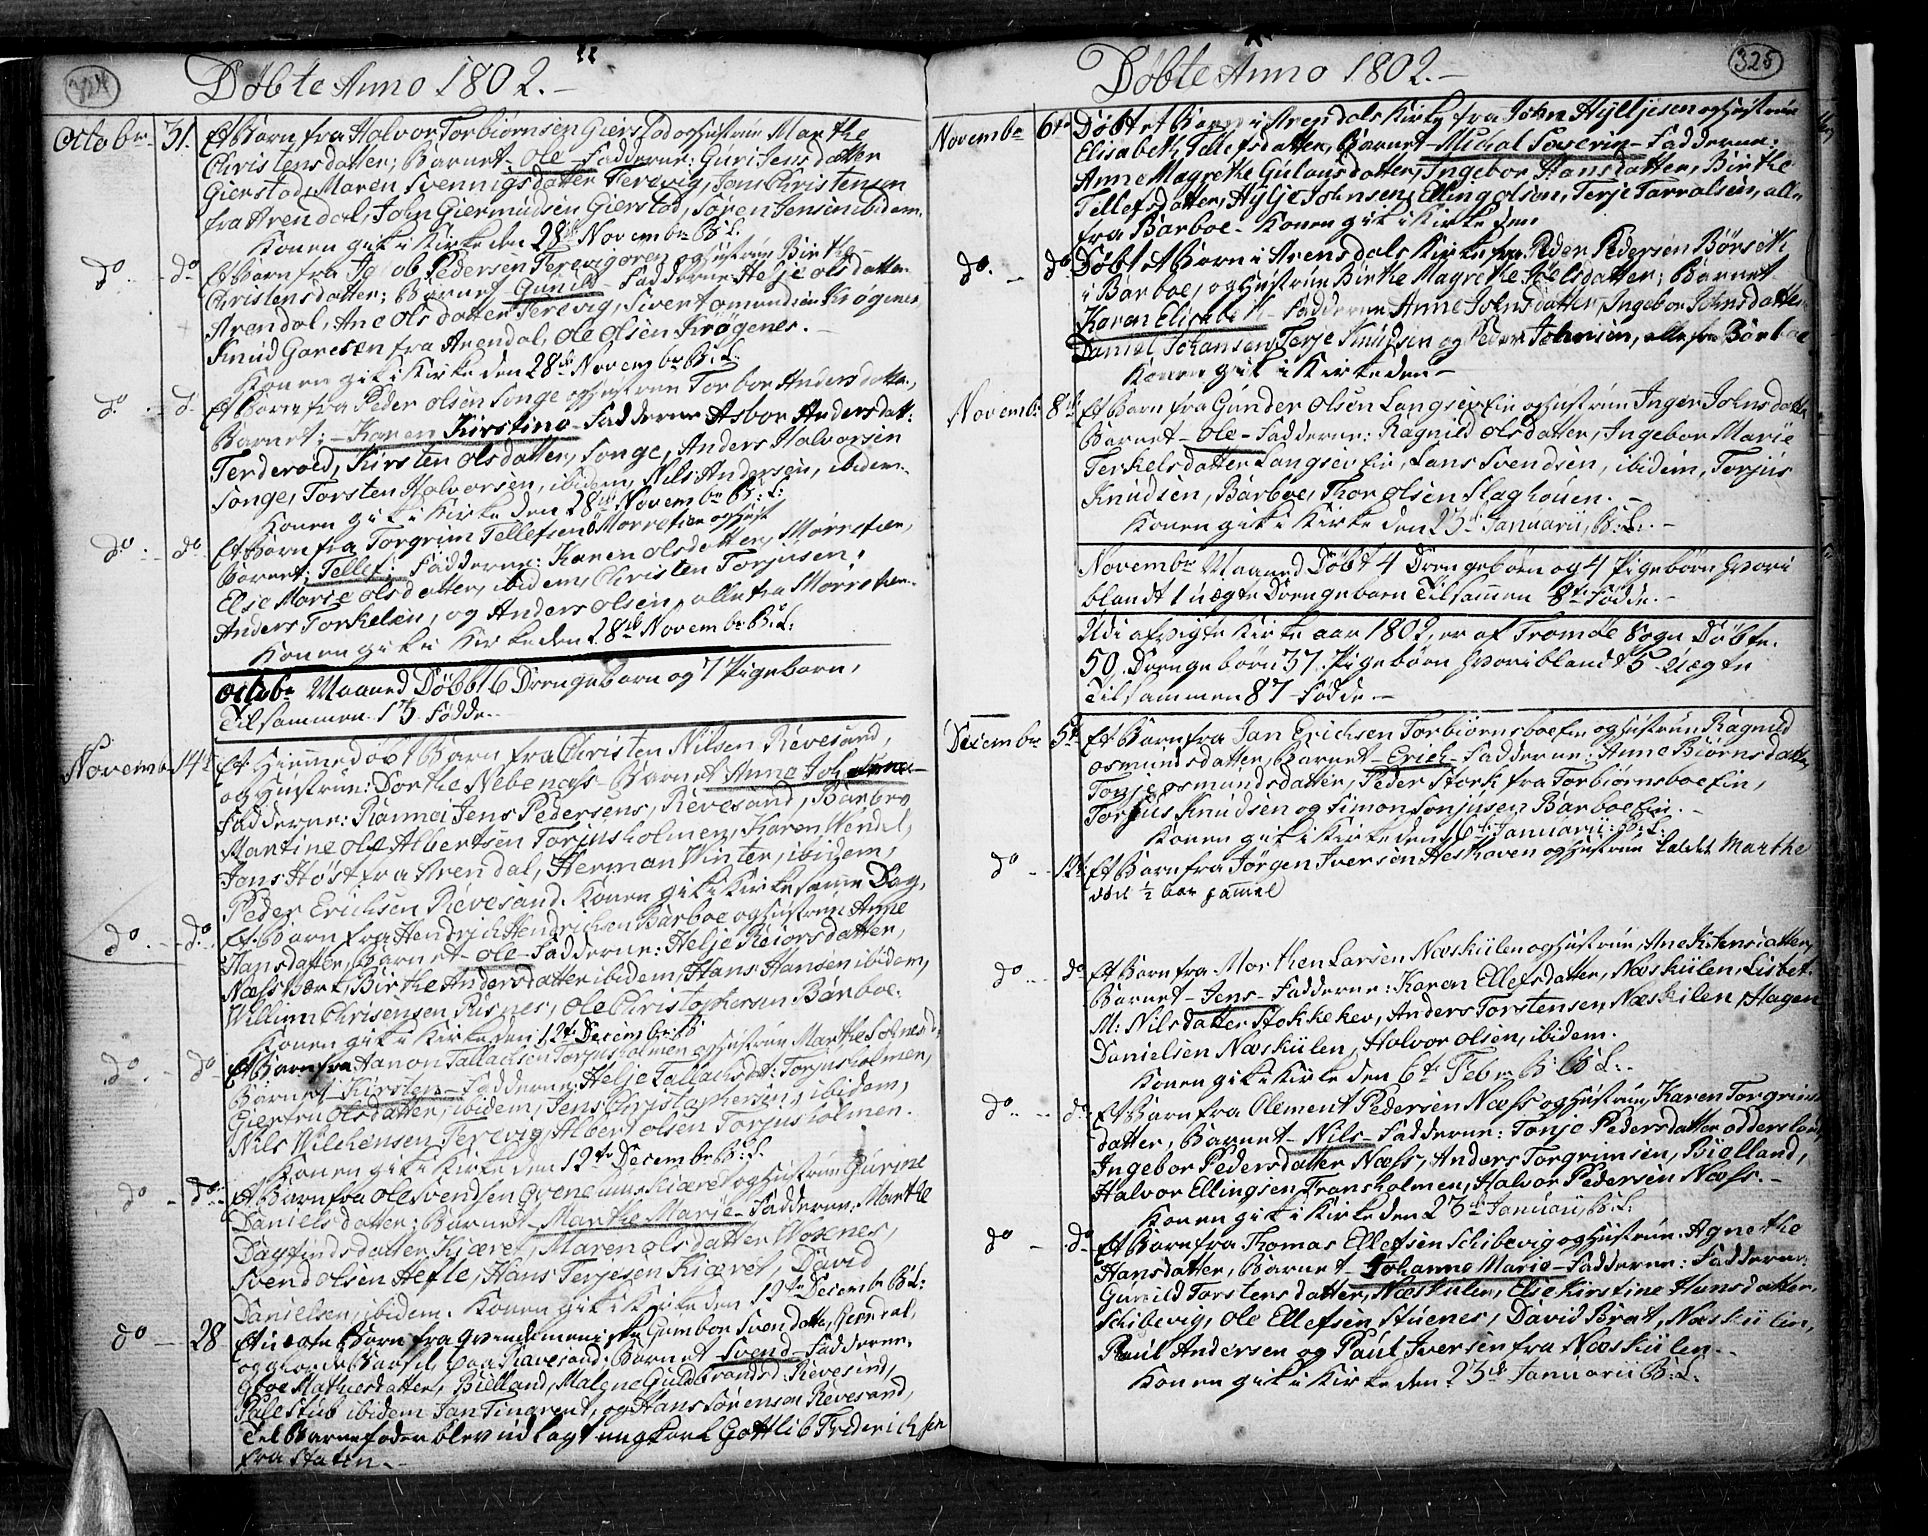 324
Döbte Anno 1802.-
Octobr 31. Et Barn fra Halvor Torbiörnsen Gierstad og Hustrün Marthe
Christensdatter; Barnet - Ole - Fadderne: Güri Jensdatter
Gierstad, Maren Svennigsdatter Terevig, Jens Christensen
fra Arendal, John Giermündsen Gierstad, Sören Jensen ibidem.
Konen gik i Kirke den 28de Novembr B: L:
do - do Et Barn fra Jacob Pedersen Terevigoren og Hustrün Birthe
Christensdatter; Barnet Gunild - Fadderne Helje Olsdatter
Arendal, Ane Olsdatter Terevig, Sivert Omundsen Krögenes,
Knüd Garesen fra Arendal, Ole Olsen Krögenes. -
Konen gik i Kirke den 28de Novembr B: L:
do - do Et Barn fra Peder Olsen Songe og Hustrün Torbor Andersdatter,
Barnet: - Karen Kirstine - Fadderne Asbor Andersdatt:
Terderoed, Kirsten Olsdatter, Songe, Anders Halvorsen
Songe, Torsten Halvorsen, ibidem, Nils Andersen, ibidem.
Konen gik i Kirke den 28de Novembr B: L:
do - do Et Barn fra Torgrim Tellefsen Morrefier og Hust
Barnet: Tellef: Fadderne: Karen Olsdatter, Morrefier,
Else Marie Olsdatter, ibidem, Christen Torjusen,
Anders Torkelsen, og Anders Olsen, alle fra Morrefier.
Konen gik i Kirke den 28de Novembr B: L:
Octobr Maaned Döbt 6 Drengebarn og 7 Pigebarn,
Tilsammen 13 Födde.
Novemb 14de Et Hiemmedöbt Barn fra Christen Nilsen Revesand,
og Hustrün: Dorthe Nebenass - Barnet Anne
Fadderne: Rannei Jens Pedersens, Revesand, Barbro
Martine Ole Albertsen Torjusholmen, Karen Wendel,
Jens Höst fra Arendal, Herman Winter, ibidem,
Peder Erichsen Revesand. Konen gik i Kirke samme Dag,
do - do Et Barn fra Hendrich Hendrichsen Barboe og Hustrün Anne
Hansdatter, Barnet - Ole - Fadderne: Helje Reiorsdatter,
Næss Værk, Birthe Andersdatter ibidem, Hans Hansen ibidem,
Willum Chrisensen Rüsnes, Ole Christophersen Barboe.
Konen gik i Kirke den 12te Decembr B
do - do Et Barn fra Aanon Tallacksen Torjusholmen og Hustrün Marthe
Barnet Kirsten - Fadderne: Helje Tallachsdt: Torjusholmen,
Giertru Olsdatter, ibidem, Jens Christophersen, ibidem,
Nils Wilchensen Terevig, Albert Olsen Torjusholmen.
Konen gik i Kirke den 12te Decembr B: L:
do - do Et Barn fra Ole Svendsen og Hustrün Gurine
Danielsdatter; Barnet - Marthe Marie - Fadderne: Marthe
Dagfindsdatter Kiæret, Maren Olsdatter Woxnes,
Svend Olsen Hefle, Hans Terjesen Kiæret, David
Danielsen ibidem. Konen gik i Kirke den 12te Decembr B: L:
do - 28 Et üægte Barn fra Qvindemenniske Gumbor Svendsdatter,
Barnet Svend - Fadderne:
Mathiesdatter, Bielland, Malene Güldbrandsd: Revesand,
ibidem Jan og Hans Sörensen Revesand,
Til Barnefader blev udlagt ungkarl Gottlib Friderichsen
fra Statin. -
325
Döbte Anno 1802.-
Novembr 6te Döbt et Barn i Arendals Kirke fra John Hylljesen og Hustrün
Elisabeth Tellefsdatter, Barnet - Michal Severin - Fadderne:
Anne Magrethe Gülausdatter, Ingebor Hansdatter, Birthe
Tellefsdatter, Hylje Johnsen, Elling Olsen, Terje Tarralsen, alle
fra Barboe - Konen gik i Kirke den
do. - do Döbt et Barn i Arendals Kirke fra Peder Pedersen Börseth
i Barboe, og Hustrün Birthe Magrethe Nielsdatter; Barnet
Karen Elisabeth - Fadderne Anne Johnsdatter, Ingebor Johnsdatter
Daniel Johansen, Terje Knüdsen og Peder Johnsen, alle fra Barboe
Konen gik i Kirke den -
Novembr 8de Et Barn fra Günder Olsen Langsevfin og Hustrün Inger Johnsdatter
Barnet - Ole - Fadderne: Ragnild Olsdatter, Ingebor Marie
Terkelsdatter Langsevfin, Lars Svendsen, ibidem, Torjus
Knüdsen, Barboe, Thor Olsen Slaghouen. -
Konen gik i Kirke den 23de Januarii, B: L: -
Novembr Maaned Döbt 4 Drengebörn og 4 Pigebörn hvori
blandt 1 uægte Drengebarn Tilsammen 8te Födde. -
Udi afvigte Kirke aar 1802, er af Tromöe Sogn Döbte.
50. Drengebörn 37. Pigebörn hvoriblandt 5 - Uægte
Tilsammen 87 Födde. -
Decembr 5te Et Barn fra Jan Erichsen Torbiörnsboefin og Hustrün Ragnild
Osmundsdatter, Barnet - Erich - Fadderne: Anne Biörnsdatter
Tonje Osmundsdatter, Peder Stork fra Torbiörnsboefin,
Torjus Knüdsen og Simon Tonjusen Barboefin. -
Konen gik i Kirke den 16de Januarii: B: L:
do - 12te Et Barn fra Jörgen Iversen Heskaven og Hustrün kaldet Marthe
död 1/2 aar gammel
do - do Et Barn fra Morthen Larsen Næskülen og Hustrün,
Barnet - Jens - Fadderne: Karen Ellefsdatter, Næskülen, Lisbet
M: Nilsdatter Stokkekev, Anders Torstensen, Næskilen, Hagen
Danielsen Næskülen, Halvor Olsen, ibidem.
Konen gik i Kirke den 6te Febr B: L:
do - do Et Barn fra Clement Pedersen Næss og Hustrün, Karen Torgrims
datter, Barnet - Nils - Fadderne: Tonje Pedersdatter Oddersland,
Ingebor Pedersdatter Næss, Anders Torgrimsen, Bielland,
Halvor Ellingsen Fransholmen, Halvor Pedersen Næss. -
Konen gik i Kirke den 23de Januarii, B: L:
do - do Et Barn fra Thomas Ellefsen Schibevig og Hustrün Agnethe
Hansdatter, Barnet - Johanne Marie - Fadderne: Fadderne
Gunild Torstensdatter, Næskülen, Else Kirstine Hansdatter
Schibevig, Ole Ellefsen Stüenes, David Brat, Næskülen,
Poul Andersen og Paul Iversen fra Næskülen -
Konen gik i Kirke den 23de Januarii B: L: